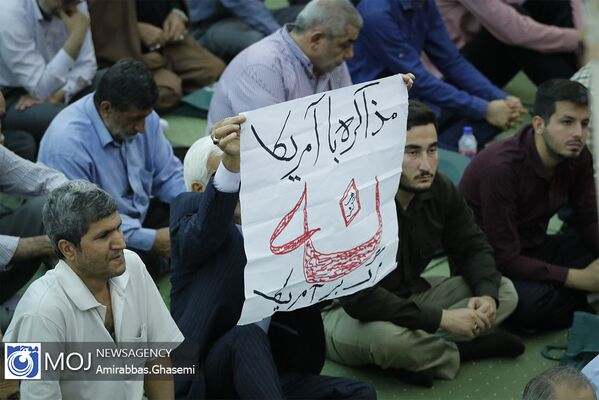 مذاکره با آمریکا
نه
مرگ بر آمریکا
MOJ NEWSAGENCY
Amirabbas.Ghasemi